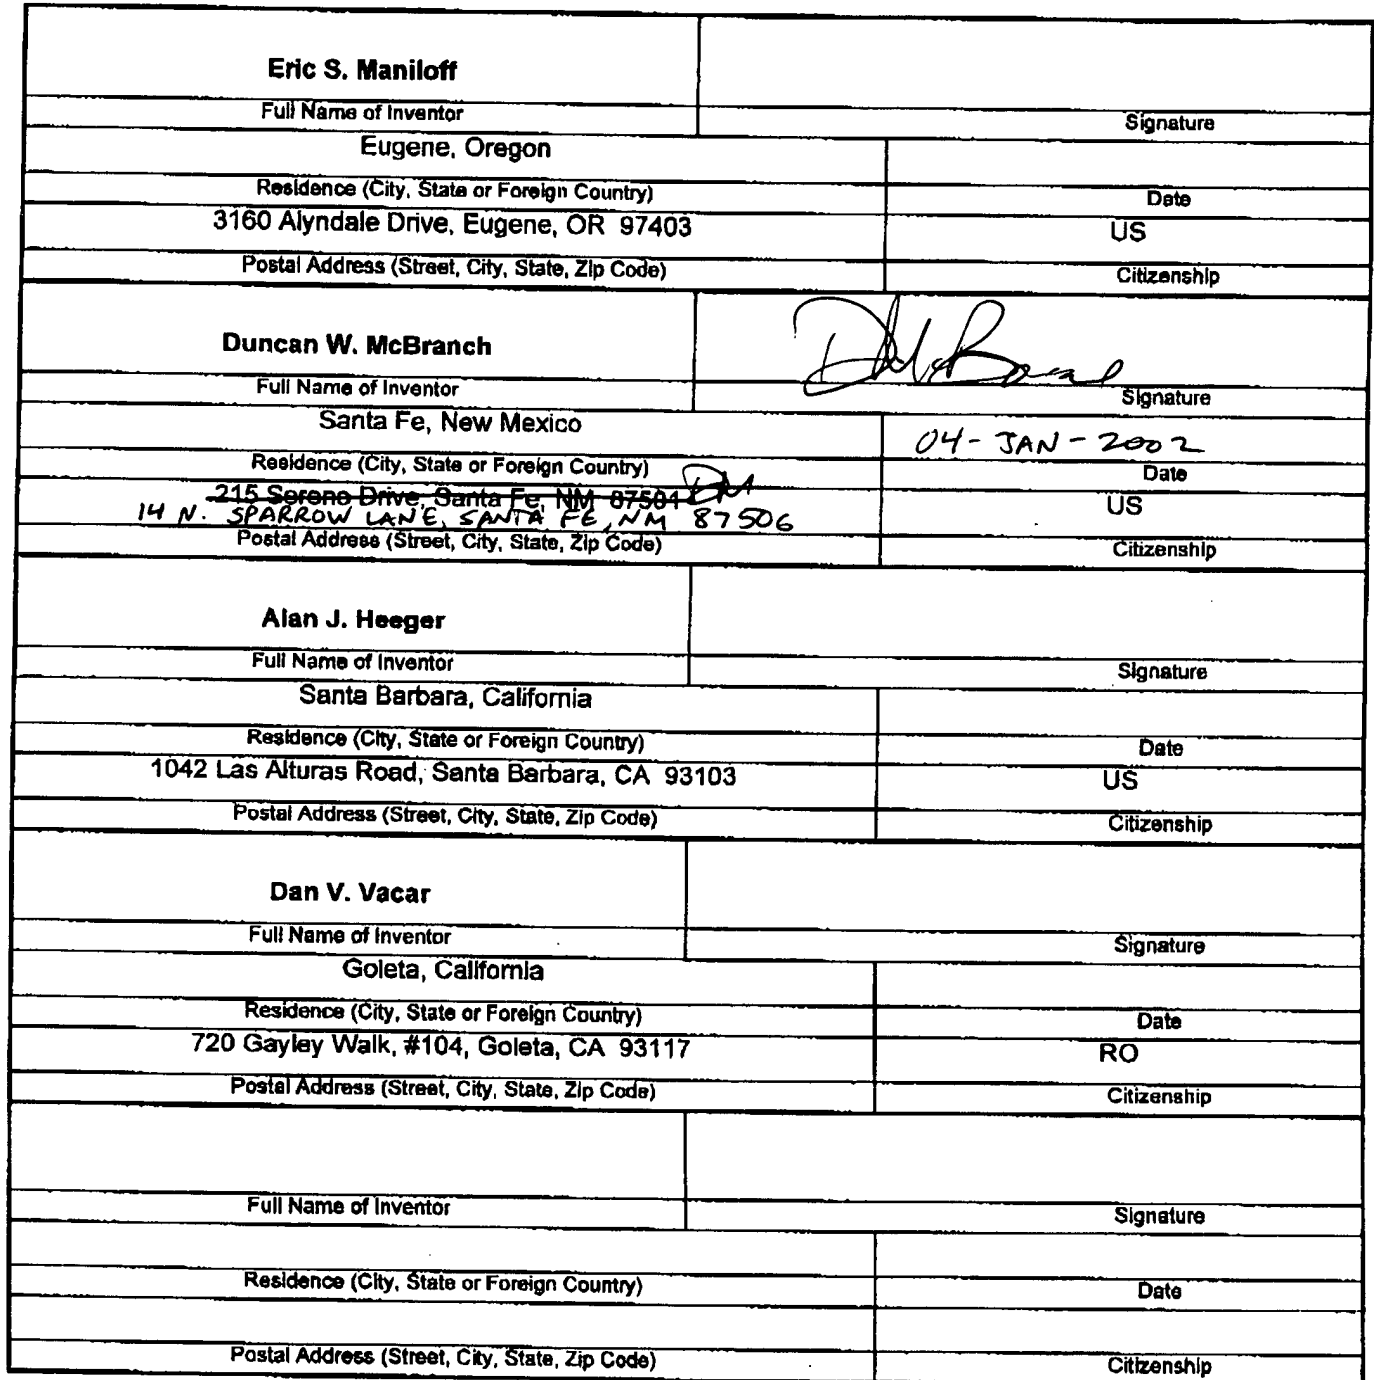 Eric S. Maniloff
Full Name of Inventor Signature
Eugene, Oregon
Residence (City, State or Foreign Country) Date
3160 Alyndale Drive, Eugene, OR 97403 US
Postal Address (Street, City, State, Zip Code) Citizenship
Duncan W. McBranch
Full Name of Inventor Signature
Santa Fe, New Mexico 04-JAN-2002
Residence (City, State or Foreign Country) Date
215 Sereno Drive, Santa Fe, NM 87501 DM US
14 N. SPARROW LANE, SANTA FE, NM 87506
Postal Address (Street, City, State, Zip Code) Citizenship
Alan J. Heeger
Full Name of Inventor Signature
Santa Barbara, California
Residence (City, State or Foreign Country) Date
1042 Las Alturas Road, Santa Barbara, CA 93103 US
Postal Address (Street, City, State, Zip Code) Citizenship
Dan V. Vacar
Full Name of Inventor Signature
Goleta, California
Residence (City, State or Foreign Country) Date
720 Gayley Walk, #104, Goleta, CA 93117 RO
Postal Address (Street, City, State, Zip Code) Citizenship
Full Name of Inventor Signature
Residence (City, State or Foreign Country) Date
Postal Address (Street, City, State, Zip Code) Citizenship